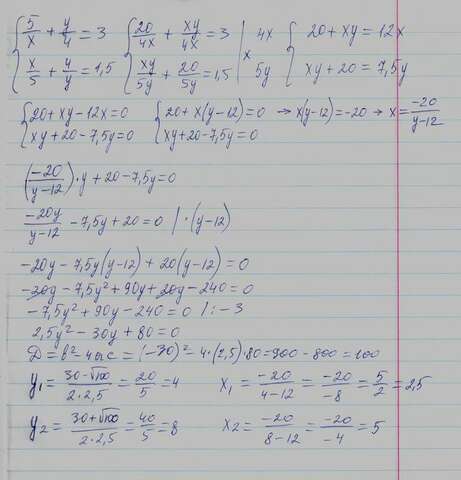 { 5/x + y/4 = 3   { 20/4x + xy/4x = 3 | × 4x   { 20 + xy = 12x
{ x/5 + 4/y = 1,5   { xy/5y + 20/5y = 1,5 | 5y   { xy + 20 = 7,5y
{ 20 + xy - 12x = 0   { 20 + x(y-12) = 0 → x(y-12) = -20 → x = -20/y-12
{ xy + 20 - 7,5y = 0   { xy + 20 - 7,5y = 0
(-20/y-12) · y + 20 - 7,5y = 0
-20y/y-12 - 7,5y + 20 = 0 | · (y-12)
-20y - 7,5y(y-12) + 20(y-12) = 0
-20y - 7,5y² + 90y + 20y - 240 = 0
-7,5y² + 90y - 240 = 0 | : -3
2,5y² - 30y + 80 = 0
D = b² - 4ac = (-30)² - 4·(2,5)·80 = 900 - 800 = 100
y₁ = 30-√100/2·2,5 = 20/5 = 4   x₁ = -20/4-12 = -20/-8 = 5/2 = 2,5
y₂ = 30+√100/2·2,5 = 40/5 = 8   x₂ = -20/8-12 = -20/-4 = 5